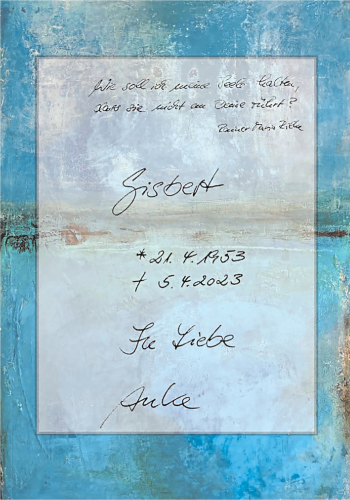 Wie soll ich meine Seele halten,
dass sie nicht an Deine rührt?
Rainer Maria Rilke
Gisbert
* 21. 4. 1953
† 5. 4. 2023
In Liebe
Anke